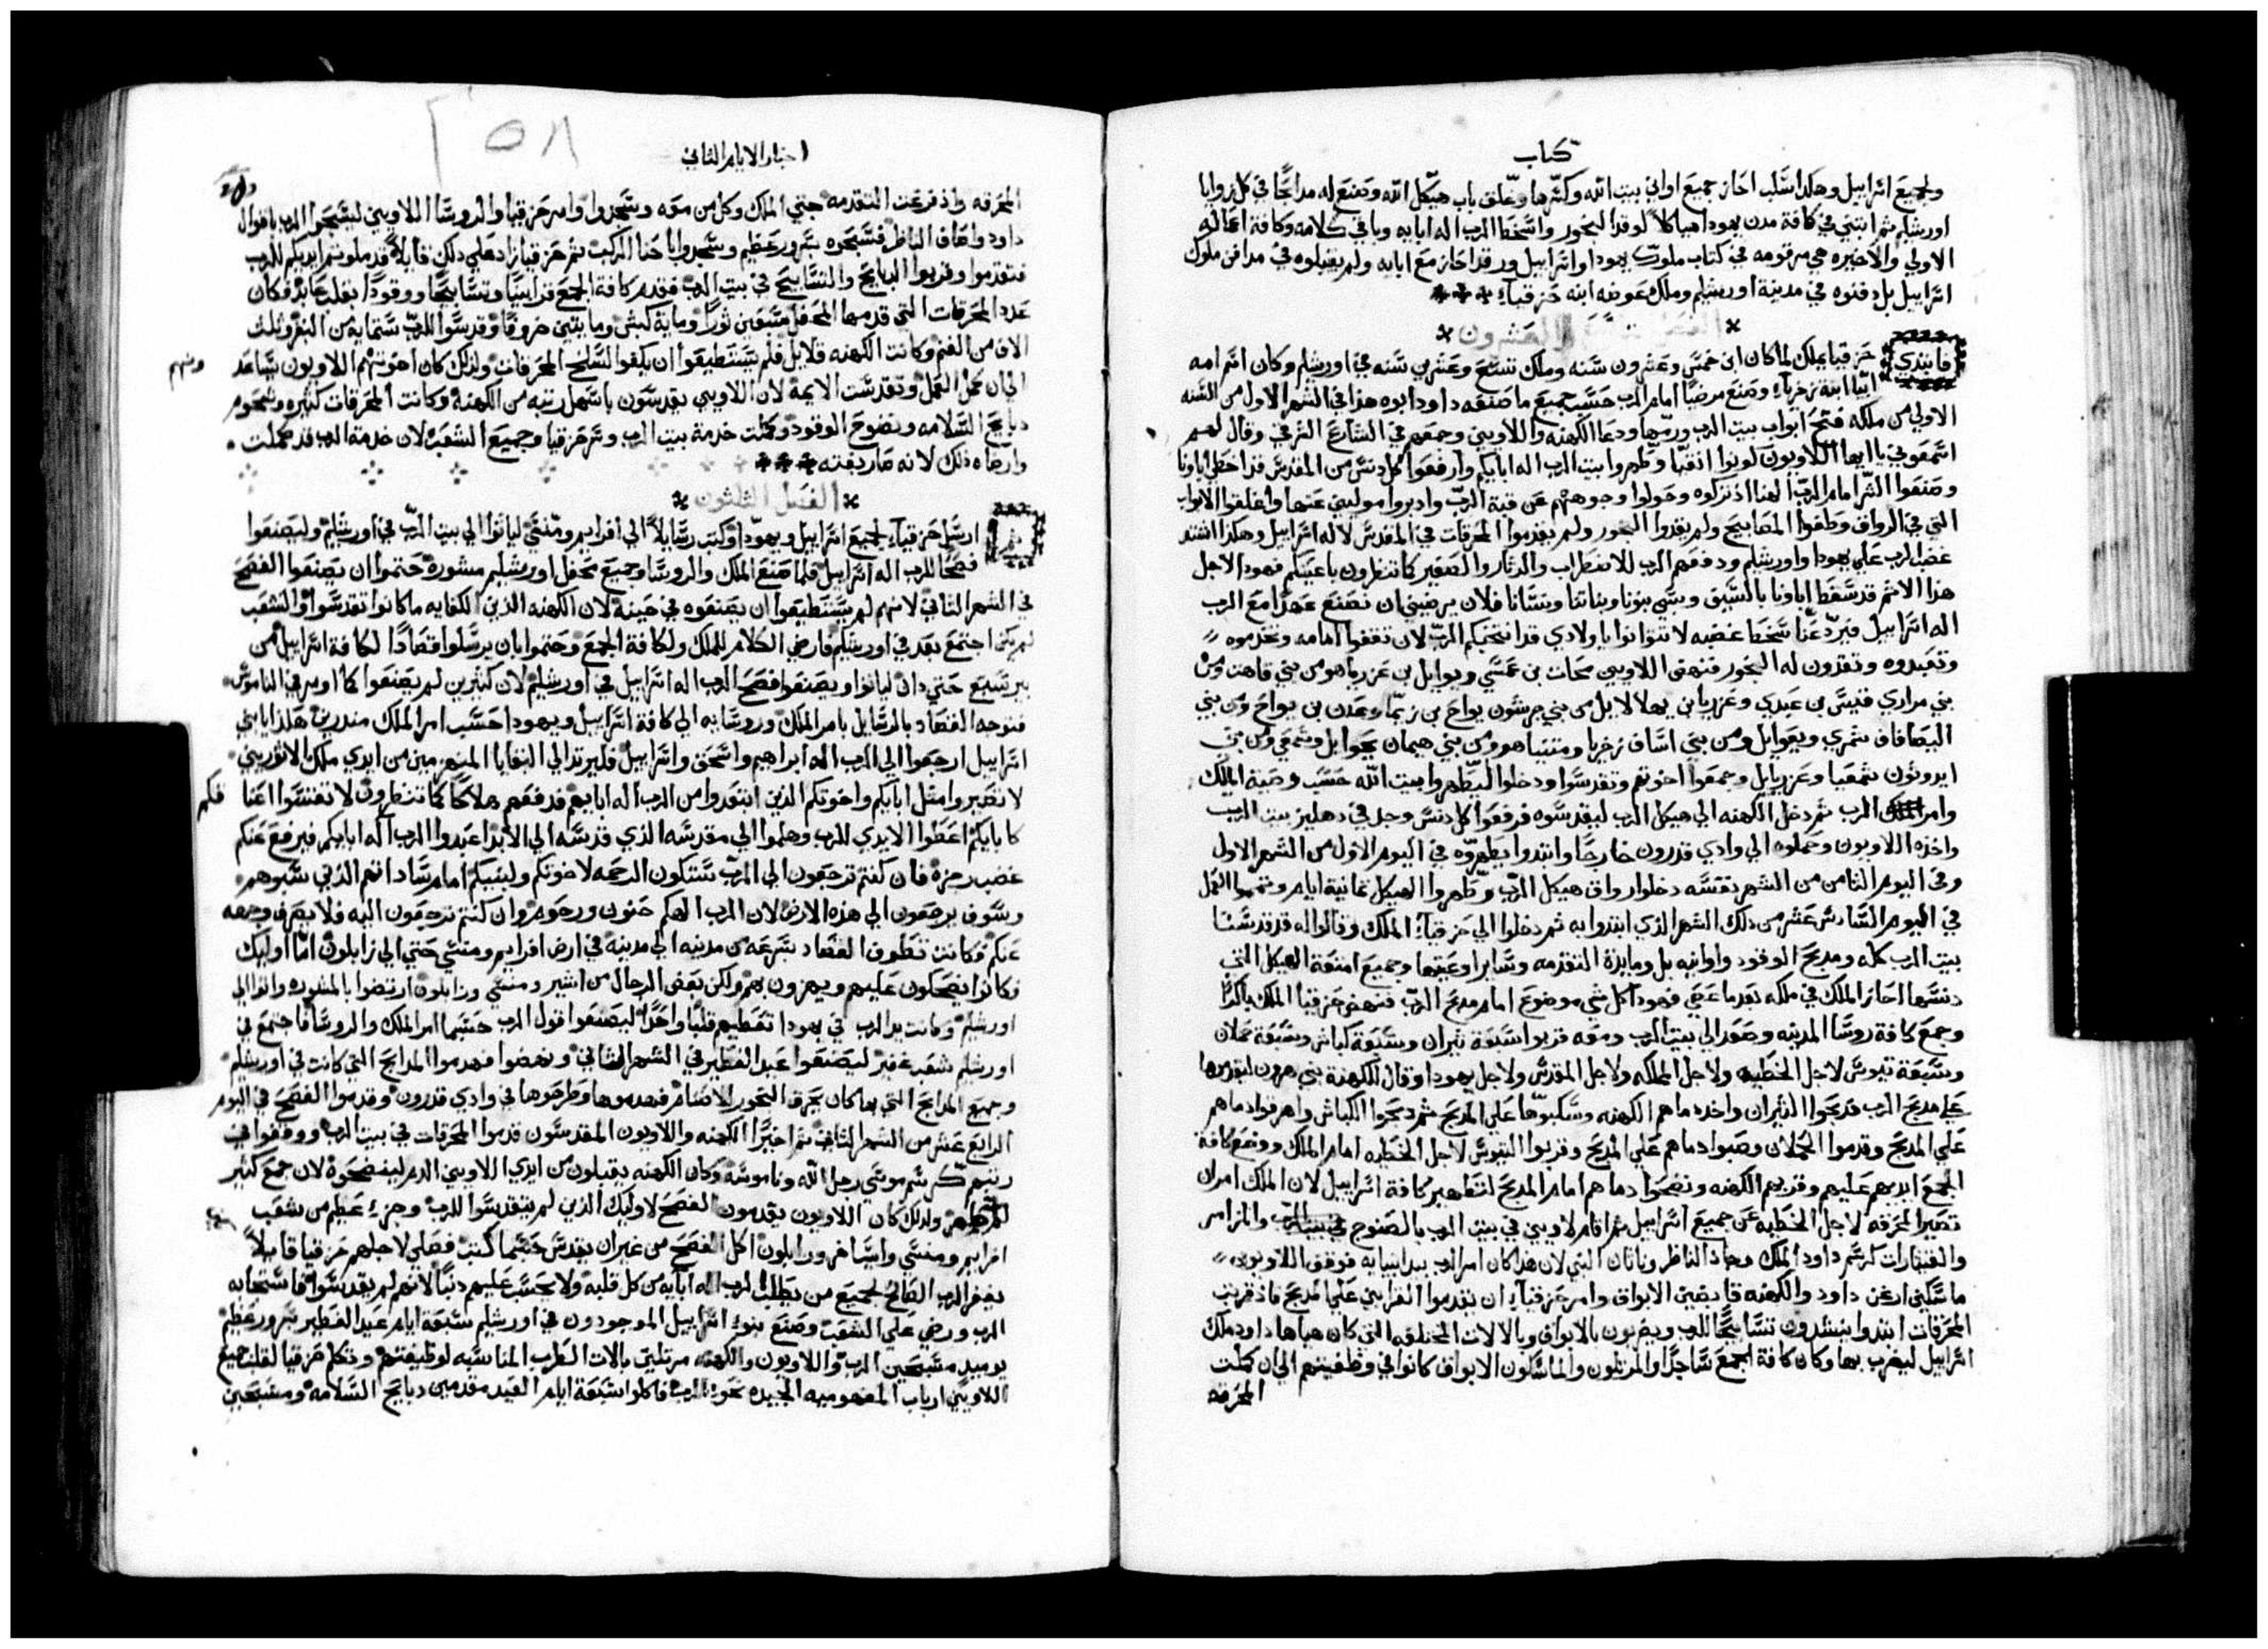 كتاب
ولجميع اسراييل وهكذا سلب احاز جميع اواني بيت الله وكسرها وغلق باب هيكل الله وصنع له مدابحًا في كل زوايا
اورشليم ثم ابتني في كافة مدن يهودا هياكلاً لوقد البخور واسخط الرب اله ابايه وباقي كلامه وكافة اعماله
الاولي والاخيره هي مرقومه في كتاب ملوك يهودا واسراييل ورقد احاز مع ابايه ولم يقبلوه في مدافن ملوك
اسراييل بل دفنوه في مدينة اورشليم وملك عوضه ابنه حزقيا
العشرون
فابتدي حزقيا يملك لما كان ابن خمس وعشرون سنه وملك تسع وعشرين سنه في اورشليم وكان اسم امه
ابيا ابنة زخريا وصنع مرضيًا امام الرب حسب جميع ما صنعه داود ابوه هذا في الشهر الاول من السنه
الاولي من ملكه فتح ابواب بيت الرب ورمها ودعا الكهنه واللاويين وجمعهم في الشارع الشرقي وقال لهم
اسمعوني يا ايها اللاويون توبوا انقيا وطهروا بيت الرب اله ابايكم وارفعوا كل دنس من المقدس قد اخطي اباونا
وصنعوا الشر امام الرب الهنا اذ تركوه وحولوا وجوههم عن قبة الرب وادبروا موليين عنها واغلقوا الابواب
التي في الرواق وطفوا المصابيح ولم يقدوا البخور ولم يقدموا المحرقات في المقدس لاله اسراييل وهكذا اشتد
غضب الرب علي يهودا واورشليم ودفعهم الرب للاضطراب والدثار والصفير كما تنظرون باعينكم فهودا لاجل
هذا الاثم قد سقط اباونا بالسيف وسبي بنونا وبناتنا ونسانا فلان يرضيني ان نصنع عهدًا مع الرب
اله اسراييل فيرد عنا سخط غضبه لا تتوانوا يا اولادي قد انتخبكم الرب لان تقفوا امامه وتخدموه
وتعبدوه وتقدون له البخور فنهض اللاويين محات بن عمسي ويوايل بن عزريا هو من بني قاهت ومن
بني مراري قيس بن عبدي وعزريا بن يهلالايل من بني جرشون يواح بن زيما وعدن بن يواح ومن بني
اليصافان شمري ويعوايل ومن بني اساف زخريا ومتنيا هو ومن بني هيمان يحوايل وشمعي ومن بني
ايدوثون شمعيا وعزيايل وجمعوا اخوتهم وتقدسوا ودخلوا ليطهروا بيت الله حسب وصية الملك
وامر الرب ثم دخل الكهنه الي هيكل الرب ليقدسوه فرفعوا كل دنس وجد في دهليز بيت الرب
واخذه اللاويون وحملوه الي وادي قدرون خارجًا وابتدوا يطهروه في اليوم الاول من الشهر الاول
وفي اليوم الثامن من الشهر نفسه دخلوا رواق هيكل الرب وطهروا الهيكل ثمانية ايام وتمموا العمل
في اليوم السادس عشر من ذلك الشهر الذي ابتدوا به ثم دخلوا الي حزقيا الملك وقالوا له قد قدسنا
بيت الرب كله ومدبح الوقود واوانيه بل ومايدة التقدمه وساير اوعيتها وجميع امتعة الهيكل التي
دنسها احاز الملك في ملكه بعد ما عصي فهوذا كل شي موضوع امام مدبح الرب فنهض حزقيا الملك باكرًا
وجمع كافة روسا المدينه وصعد الي بيت الرب ومعه قربوا سبعة ثيران وسبعة كباش وسبعة حملان
وسبعة تيوس لاجل الخطيه ولاجل المملكه ولاجل المقدس ولاجل يهودا وقال للكهنة بني هرون ليقدموها
علي مدبح الرب فدبحوا الثيران واخد دماهم الكهنه وسكبوها علي المدبح ثم دبحوا الكباش واهرقوا دماهم
علي المدبح وقدموا الحملان وصبوا دماهم علي المدبح وقربوا التيوس لاجل الخطيه امام الملك ووضع كافة
الجمع ايديهم عليهم وقدمهم الكهنه ونضحوا دماهم امام المدبح لتطهير كافة اسراييل لان الملك امر ان
تصير المحرقه لاجل الخطيه عن جميع اسراييل ثم اقام لاويين في بيت الرب بالصنوج والمزامر
والقيثارات كرسم داود الملك وجاد الناظر وناثان النبي لان هذا كان امر الرب بيد انبيايه فوقف اللاويون
ماسكين ارغن داود والكهنه قابضين الابواق وامر حزقيا ان يقدموا القرابين علي المدبح فاذ قربت
المحرقات ابتدوا ينشدون تسابيحًا للرب ويضربون بالابواق وبالالات المختلفه التي كان هياها داود ملك
اسراييل ليضرب بها وكان كافة الجمع ساجدًا والمرتلون والماسكون الابواق كانوا في وظفيتهم الي ان كملت
المحرقه
اخبار الايام الثاني
٢٥٨
المحرقه واذ فرغت التقدمه جثي الملك وكل من معه وسجدوا وامر حزقيا والروسا اللاويين ليسبحوا الرب باقوال
داود واساف الناظر فسبحوه بسرور عظيم وسجدوا باحنا الركب ثم حزقيا زاد علي ذلك قايلاً قد ملوتم ايديكم للرب
فتقدموا وقربوا الدبايح والتسابيح في بيت الرب فقدم كافة الجمع قرابينًا وتسابيحًا ووقودًا بقلب عابد فكان
عدد المحرقات التي قدمها المحفل سبعين ثورًا وماية كبش ومايتين خروفًا وقدسوا للرب ستمايه من البقر وثلث
الاف من الغنم وكانت الكهنه قلايل فلم يستطيعوا ان يكفوا لسلخ المحرقات ولذلك كان اخوتهم اللاويون تساعد
ونهم
الي ان كمل العمل وتقدست الايمة لان اللاويين يتقدسون باسهل رتبه من الكهنة وكانت المحرقات كثيره وشحوم
دبايح السلامه ونضوح الوقود وكملت خدمة بيت الرب وسر حزقيا وجميع الشعب لان خدمة الرب قد كملت
وارضاه ذلك لانه صار بغته
الفصل الثلثون
ارسل حزقيا لجميع اسراييل ويهودا وكتب رسايلاً الي افرايم ومنسي لياتوا الي بيت الرب في اورشليم وليصنعوا
فصحًا للرب اله اسراييل فلما صنع الملك والروسا وجميع محفل اورشليم مشورة حتموا ان يصنعوا الفصح
في الشهر الثاني لانهم لم يستطيعوا ان يصنعوه في حينه لان الكهنه الذين الكفايه ما كانوا تقدسوا والشعب
لم يكن اجتمع بعد في اورشليم فارضي الكلام للملك ولكافة الجمع وحتموا بان يرسلوا قصادًا لكافة اسراييل من
بير سبع حتي دان لياتوا ويصنعوا فصح الرب اله اسراييل في اورشليم لان كثيرين لم يصنعوا كما اومر في الناموس
فتوجه القصاد بالرسايل بامر الملك وروسايه الي كافة اسراييل ويهودا حسب امر الملك منذرين هكذا يا بني
اسراييل ارجعوا الي الرب اله ابراهيم واسحق واسراييل فليرتد الي البقايا المنهزمين من ايدي ملك الاثوريين
لا تصيروا مثل ابايكم واخوتكم الذين ابتعدوا من الرب اله ابايهم فدفعهم هلاكًا كما تنظرون لا تقسوا اعنا
قكم
كابايكم اعطوا الايدي للرب وهلموا الي مقدسه الذي قدسه الي الابد اعبدوا الرب اله ابايكم فيرفع عنكم
غضب رجزه فان كنتم ترجعون الي الرب ستكون الرحمه لاخوتكم ولبنيكم امام ساداتهم الذين سبوهم
وسوف يرجعون الي هذه الارض لان الرب الهكم حنون ورحوم وان كنتم ترجعون اليه فلا يصرف وجهه
عنكم فكانت تطوف القصاد بسرعه من مدينه الي مدينه في ارض افرايم ومنسي حتي الي زابلون اما اوليك
فكانوا يضحكون عليهم ويهزون بهم ولكن بعض الرجال من اشير ومنسي وزابلون ارتضوا بالمشوره واتوا الي
اورشليم وكانت يد الرب في يهودا تعطيهم قلبًا واحدًا ليصنعوا قول الرب حسبما امر الملك والروسا فاجتمع في
اورشليم شعب غفير ليصنعوا عيد الفطير في الشهر الثاني ونهضوا فهدموا المدابح التي كانت في اورشليم
وجميع المدابح التي بها كان يحرق البخور للاصنام فهدموها وطرحوها في وادي قدرون وقدموا الفصح في اليوم
الرابع عشر من الشهر الثاني ثم اخيرًا الكهنه واللاويون المقدسون قدموا المحرقات في بيت الرب ووقفوا في
رتبتهم كرسم موسي رجل الله وناموسه وكان الكهنه يقبلون من ايدي اللاويين الدم لينضحوه لان جمع كثير
ولذلك كان اللاويون يقدمون الفصح لاوليك الذين لم يتقدسوا للرب وجزء عظيم من شعب
افرايم ومنسي وايساخر وزابلون اكل الفصح من غير ان يقدس حسبما كتب فصلي لاجلهم حزقيا قايلاً
يغفر الرب الصالح لجميع من يطلب الرب اله ابايه من كل قلبه ولا يحسب عليهم ذنبًا لانهم لم يقدسوا فاستجابه
الرب ورضي علي الشعب وصنع بنو اسراييل الموجودون في اورشليم سبعة ايام عيد الفطير بسرور عظيم
يوميد مسبحين الرب واللاويون والكهنه مرتلين بالات الطرب المناسبه لوظيفتهم وتكلم حزقيا لقلب جميع
اللاويين ارباب المفهوميه الجيده نحو الرب فاكلوا سبعة ايام العيد مقدمين دبايح السلامه ومسبحين